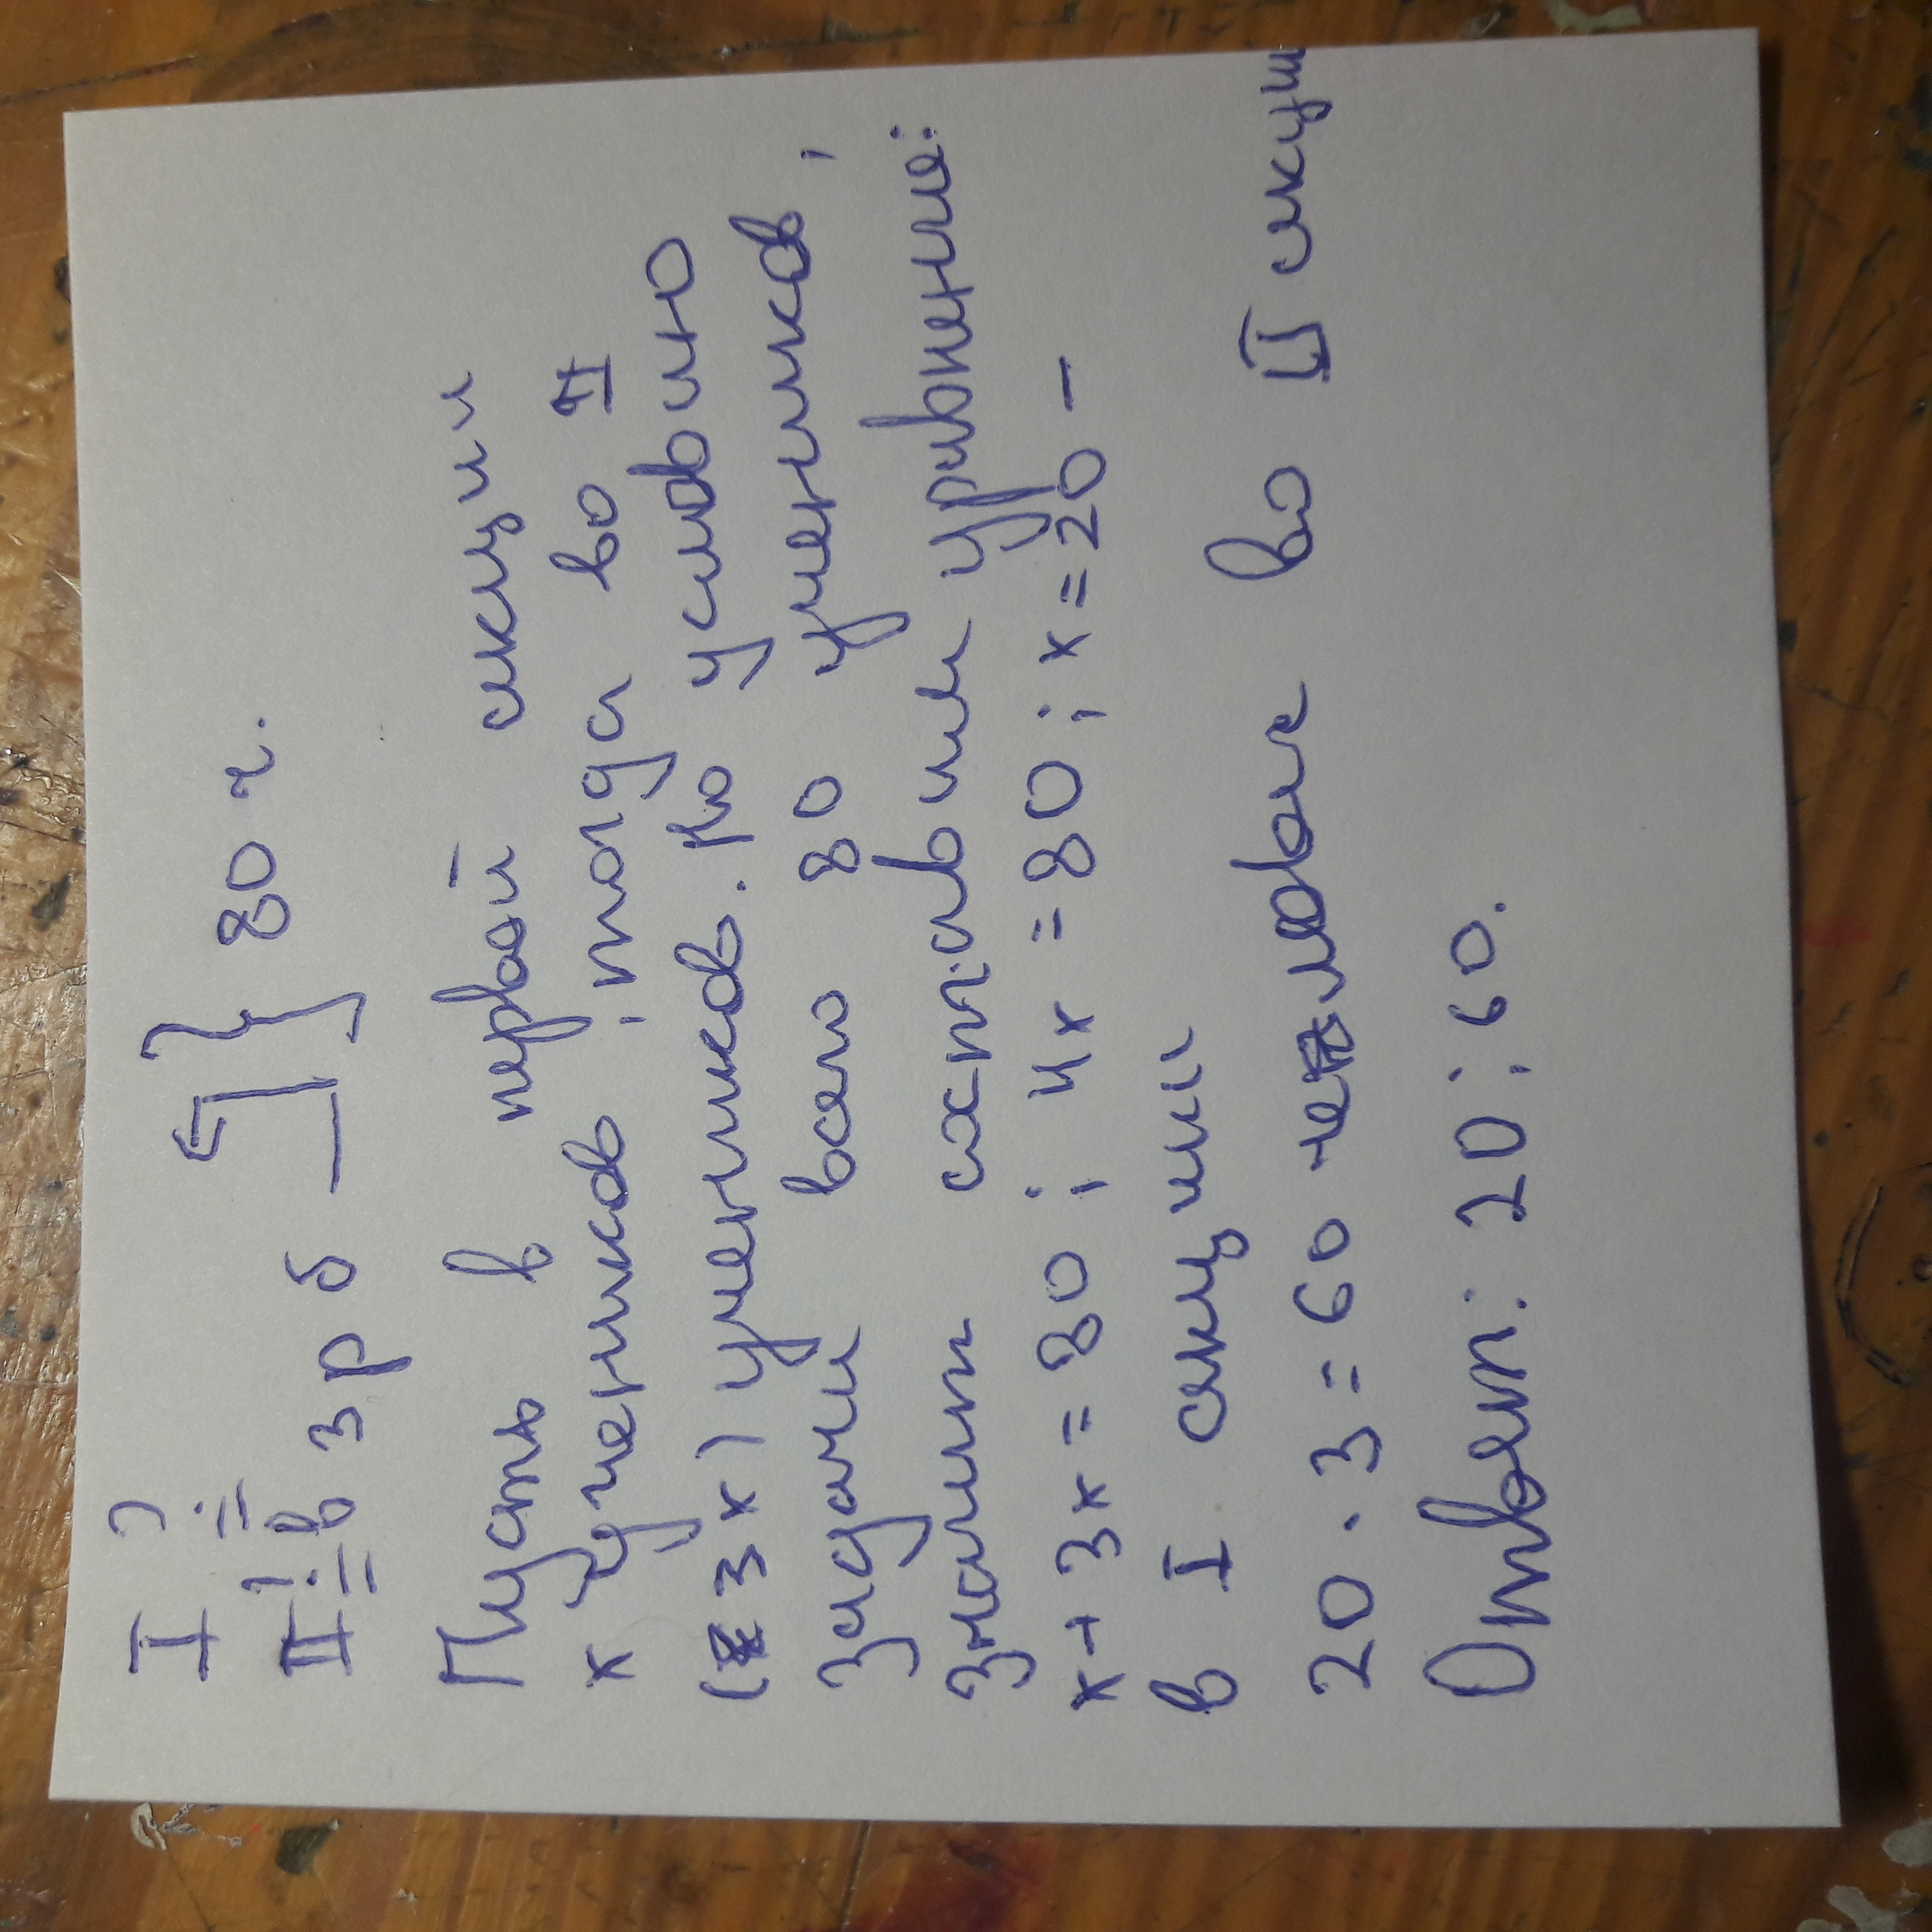 I ?
II ? в 3 р б } 80 ч.
Пусть в первой секции
х учеников, тогда во II
(3х) учеников. По условию
задачи всего 80 учеников,
значит составим уравнение:
х+3х=80; 4х=80; х=20 –
в I секции
20·3=60 человек во II секции
Ответ: 20; 60.